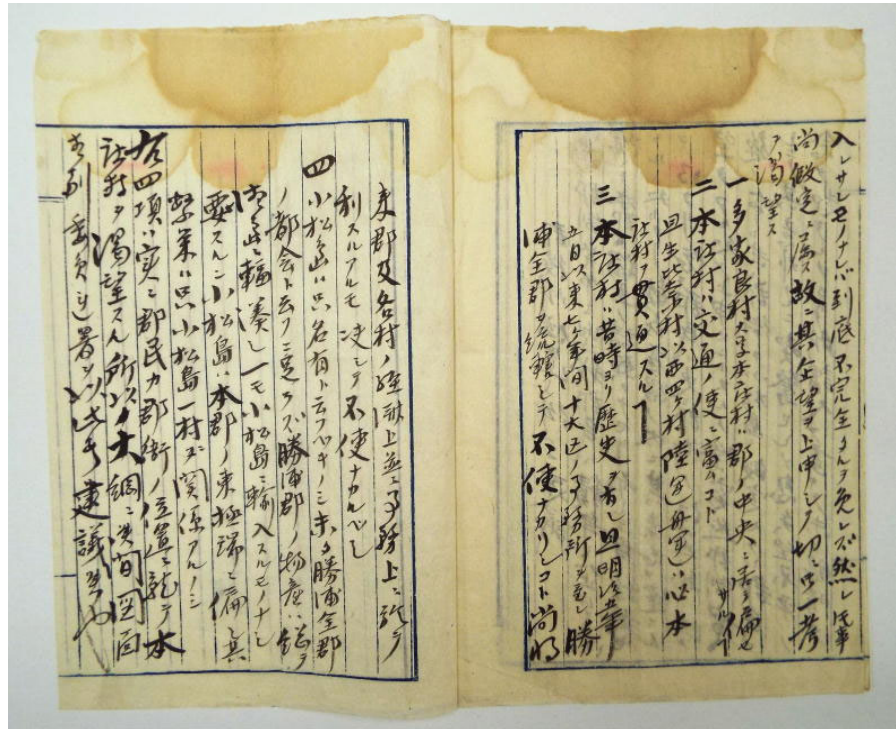 入レサレモノナレバ到底不完全タルヲ免レズ然レ𪜈事
尚假定ニ属ス故ニ其全望ヲ上申シテ切ニ只一考
ヲ渇望ス
一多家良村大字本庄村ハ郡ノ中央ニ居テ偏セサルコト
二本庄村ハ交通ノ便ニ富ムコト
且生比奈村以西四ヶ村陸運舟運ハ必本
庄村ヲ貫通スルヿ
三本庄村ハ昔時ヨリ歴史ヲ有シ且明治五年
五月以東七ヶ年間十大区ノ事務所ヲ置シ勝
浦全郡ヲ統轄シテ不便ナカリシコト尚将
来郡及各村ノ経済上並ニ事務上ニ於テ
利スルアルモ決シテ不便ナカルベシ
四小松島ハ只名有ト云フベキノミ未タ勝浦全郡
ノ都会ト云フニ足ラズ勝浦郡ノ物産ハ総テ
ニ輻湊シ一モ小松島ニ輸入スルモノナシ
要スルニ小松島ハ本郡ノ東極端ニ偏シ其
繁栄ハ只小松島一村ニ関係アルノミ
右四項ハ実ニ郡民カ郡衙ノ位置ニ就テ本
庄村ヲ渇望スル所以ノ大綱ニ
委員連署ヲ以此号建議候也